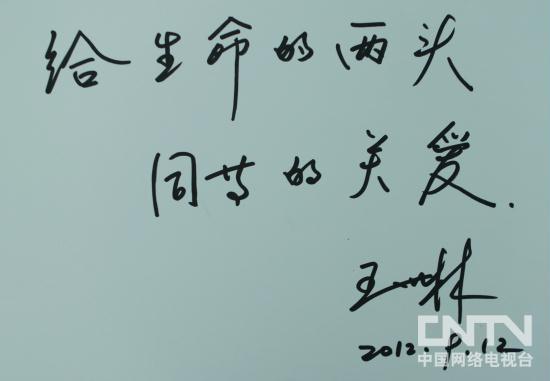 给生命的两头
同等的关爱.
王一林
2012.9.12
CNTV
中国网络电视台